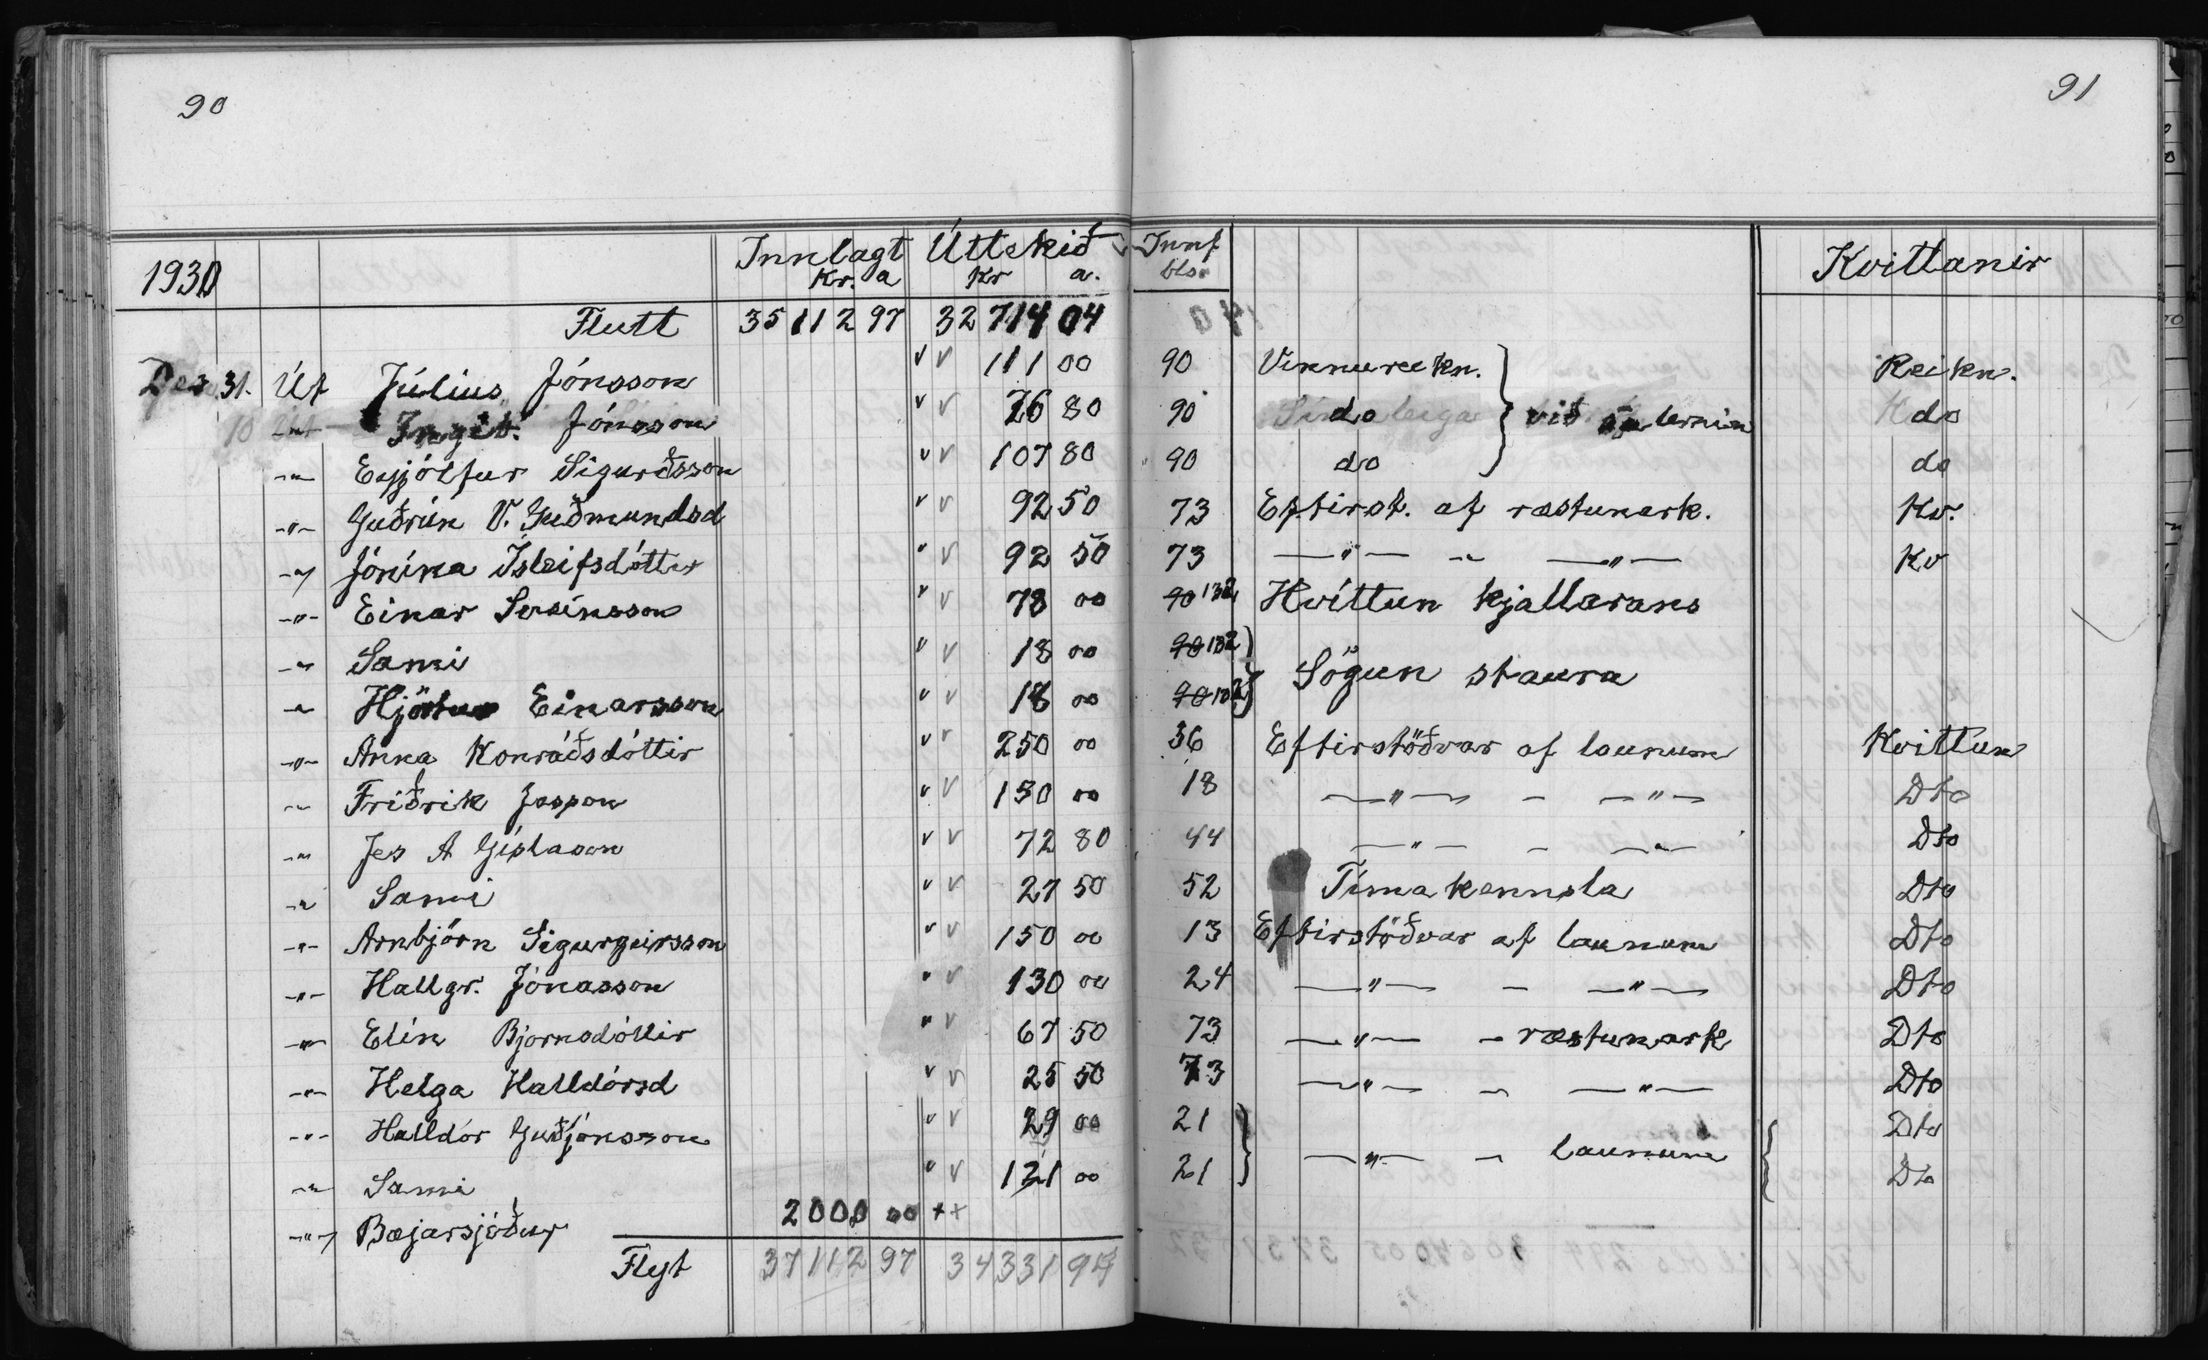 90
91
1930 Innlagt Úttekið Innf Kvittanir
Kr. a Kr a. bls.
Flutt 35112 97 32714 04
Des. 31. Út Júlíus Jónsson " v 111 00 90 Vinnureikn. Reikn.
-"- Jónsson " v 76 80 90 do við do
-"- Eyjólfur Sigurðsson " v 107 80 90 do do
-"- Guðrún V. Guðmundsd " v 92 50 73 Eftirst. af ræstunark. Kv.
-"- Jónína Ísleifsdóttir " v 92 50 73 -"- " -"- Kv
-"- Einar " v 78 00 90 132 Hvíttun kjallarans
-"- Sami " v 18 00 90 132
Sögun staura
-"- Hjörtur Einarsson " v 18 00 90 132
-"- Anna Konráðsdóttir " v 250 00 36 Eftirstöðvar af launum Kvittun
-"- Friðrik Jesson " v 130 00 18 -"- - -"- Dto
-"- Jes A Gíslason " v 72 80 44 -"- - -"- Dto
-"- Sami " v 27 50 52 Tímakennsla Dto
-"- Arnbjörn Sigurgeirsson " v 150 00 13 Eftirstöðvar af launum Dto
-"- Hallgr. Jónasson " v 130 00 24 -"- - -"- Dto
-"- Elín Bjornsdóttir " v 67 50 73 -"- - ræstunark Dto
-"- Helga Halldórsd " v 25 50 73 -"- - -"- Dto
-"- Halldór Guðjónsson " v 29 00 21 Dto
-"- - launum
-"- Sami " v 121 00 21 Dto
-"- Bæjarsjóður 2000 00 ++
Flyt 37112 97 34331 94